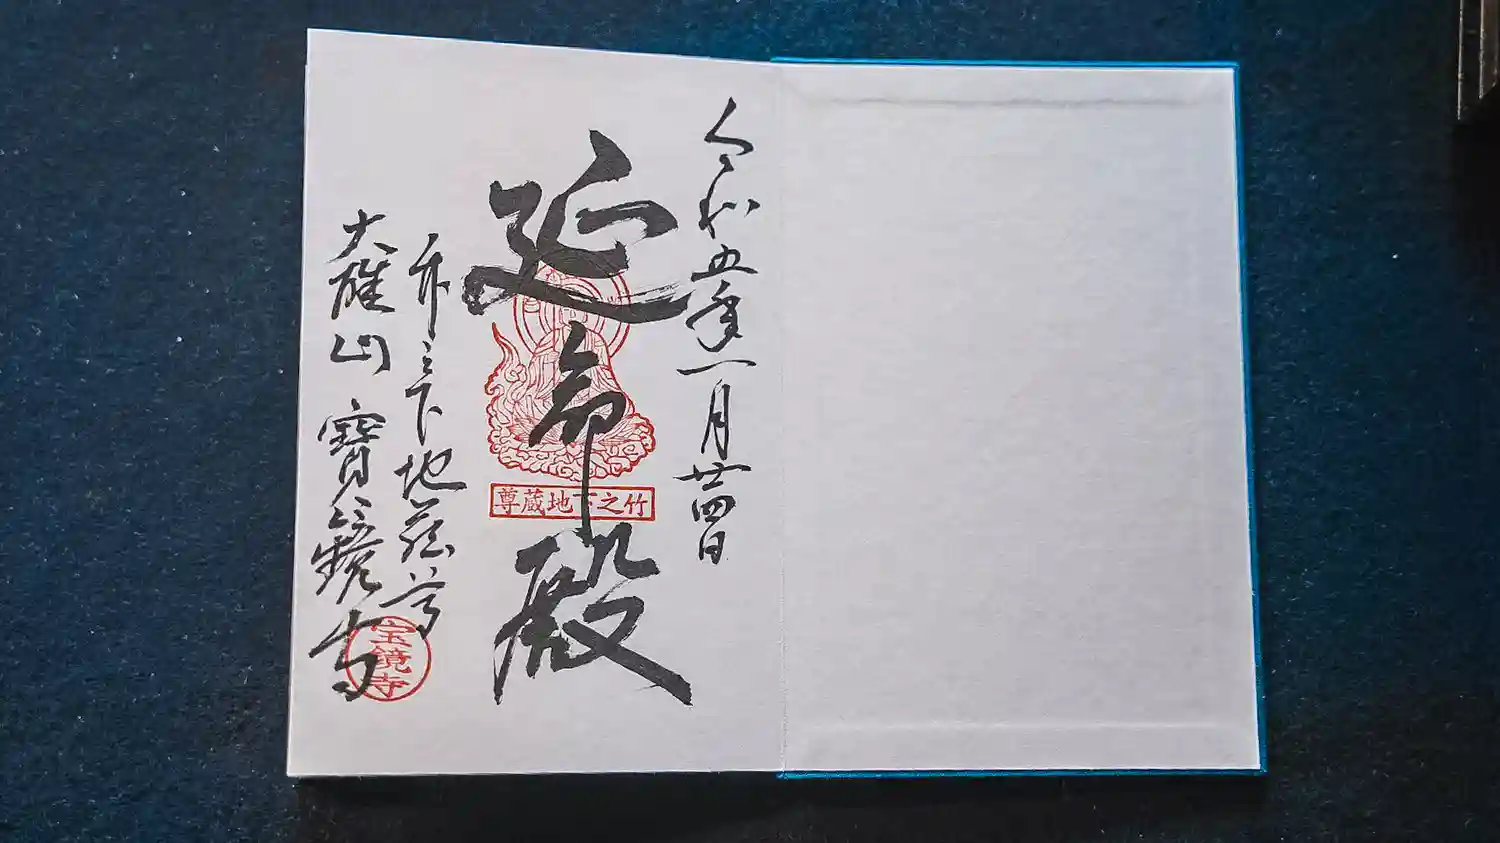 令和五年一月廿四日
延命殿
竹之下地蔵尊
竹之下地蔵尊
大雄山 寳鏡寺
宝鏡寺